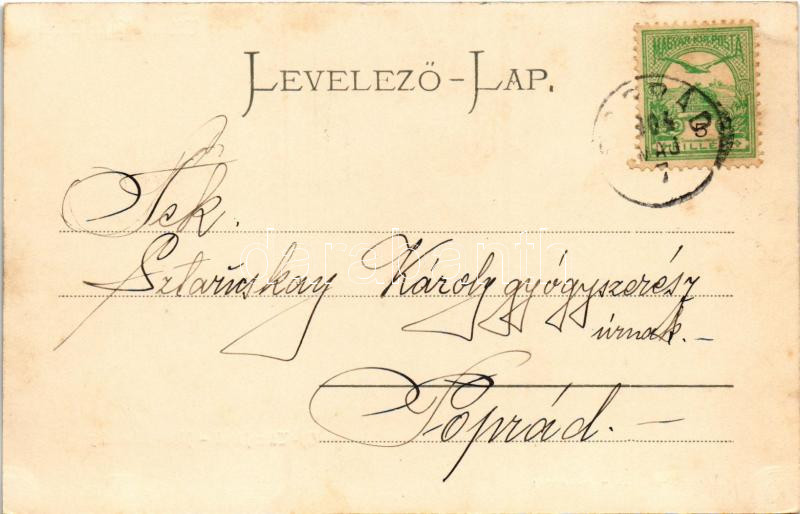 LEVELEZŐ-LAP.
MAGYAR·KIR·POSTA
5
904
MÁJ
7
Tek.
Károly gyógyszerész
úrnak.-
Poprád.-
darabanth